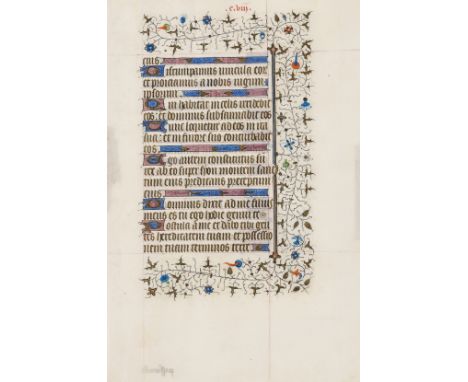 c.viij.
eius
Disrumpamus vincula eor
et proiciamus a nobis iugum
ipsorum
Qui habitat in celis irridebit
eos et dominus subsannabit eos
Tunc loquetur ad eos in ira
sua et in furore suo conturbabit
eos
Ego autem constitutus su
rex ab eo super syon montem sanc
tum eius predicans preceptum
eius
Dominus dixit ad me filius
meus es tu ego hodie genui te
Postula a me et dabo tibi gen
tes hereditatem tuam et possessio
nem tuam terminos terre